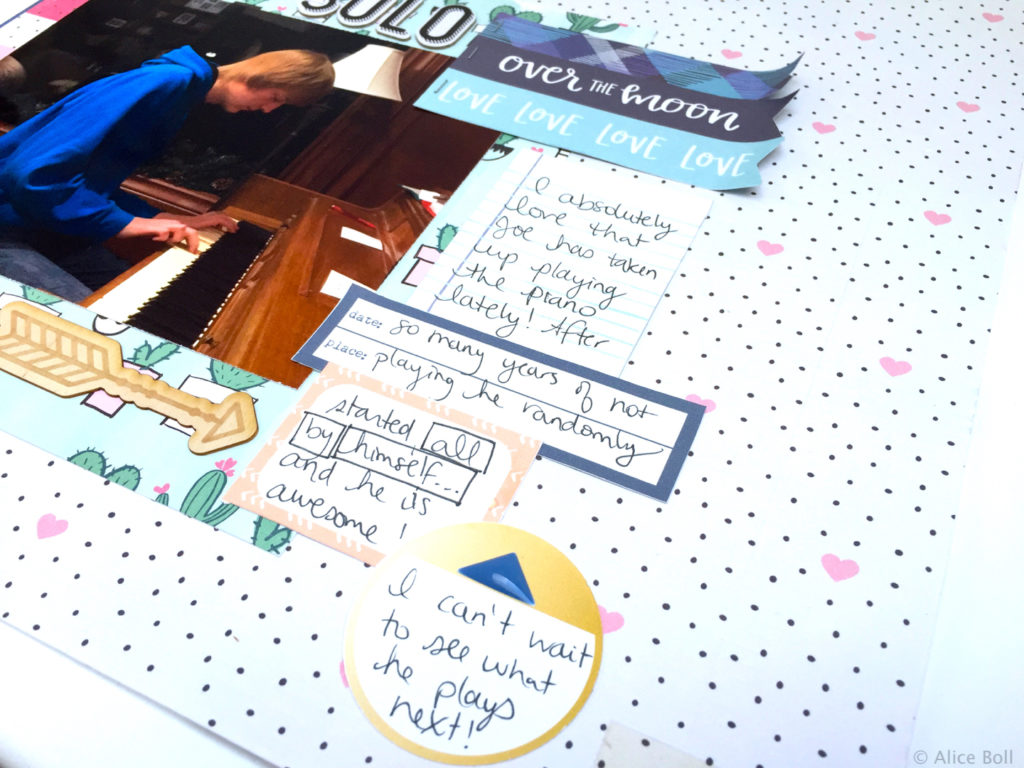 SOLO
over THE moon
LOVE LOVE LOVE LOVE
I absolutely
love that
Joe has taken
up playing
the piano
lately! After
date: so many years of not
place: playing he randomly
started all
by himself...
and he is
awesome!
I can't wait
to see what
he plays
next!
© Alice Boll